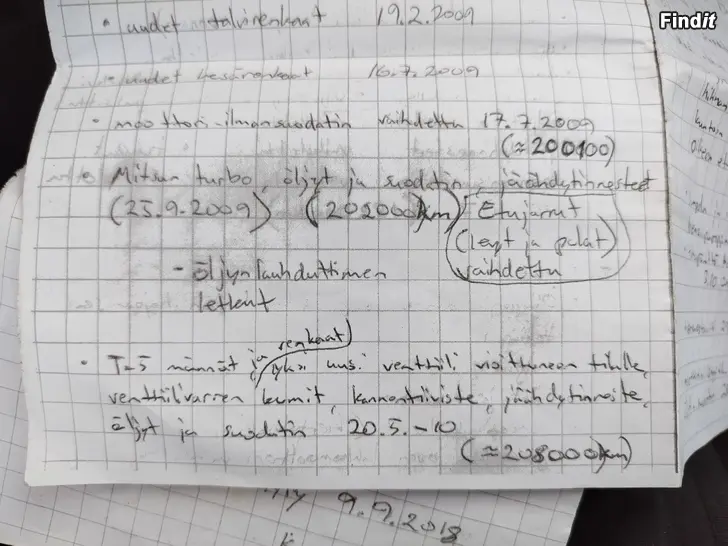 Findit
• uudet talvirenkaat 19.2.2009
• uudet kesärenkaat 16.7.2009
• moottori-ilmansuodatin vaihdettu 17.7.2009
(≈200100)
Mitsun turbo, öljyt ja suodatin, jäähdytinnesteet
(25.9.2009) (202000km) Etujarrut
(levyt ja palat)
vaihdettu
- öljynlauhduttimen
letkut
renkaat
• T-5 männät ja yksi uusi venttiili vioittuneen tilalle,
venttiilivarren kumit, kannentiiviste, jäähdytinneste,
öljyt ja suodatin 20.5.-10
(≈208000km)
9.9.2018